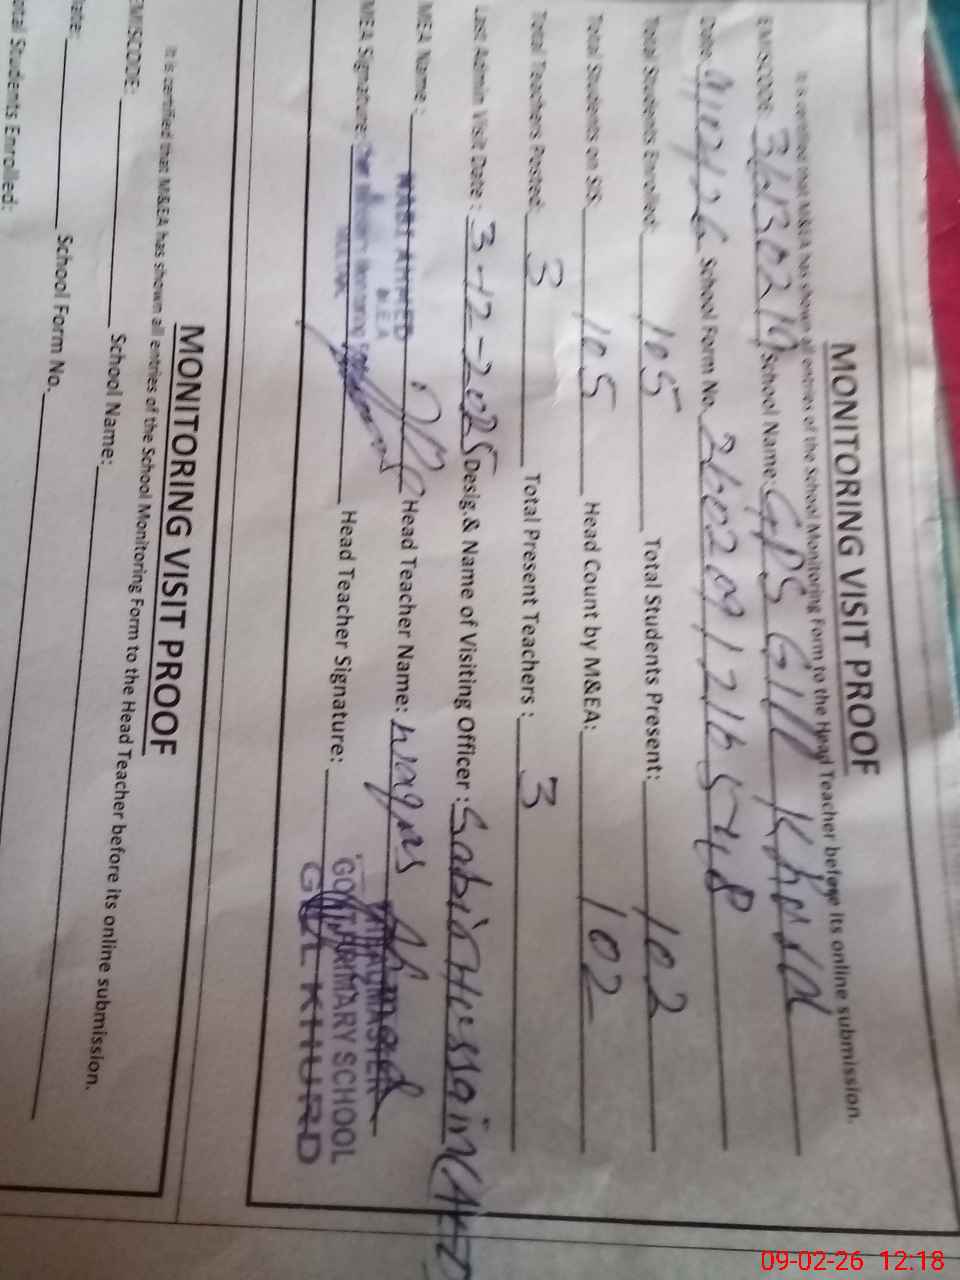 MONITORING VISIT PROOF
It is certified that M&EA has shown all entries of the School Monitoring Form to the Head Teacher before its online submission.
EMISCODE: School Name: GPS Gill Khurd
Date: 09/02/26 School Form No. 
Total Students Enrolled: 105 Total Students Present: 102
Total Students on SIS: 105 Head Count by M&EA: 102
Total Teachers Posted: 3 Total Present Teachers: 3
Last Admin Visit Date: 3-12-2025 Desig.& Name of Visiting Officer: Sabir Hussain
MEA Name: AHMED M.E.A Head Teacher Name: Waqas Ahmad
MEA Signature: Head Teacher Signature: GOVT. PRIMARY SCHOOL
GILL KHURD
MONITORING VISIT PROOF
It is certified that M&EA has shown all entries of the School Monitoring Form to the Head Teacher before its online submission.
EMISCODE: School Name:
Date: School Form No.
Total Students Enrolled:
09-02-26 12:18